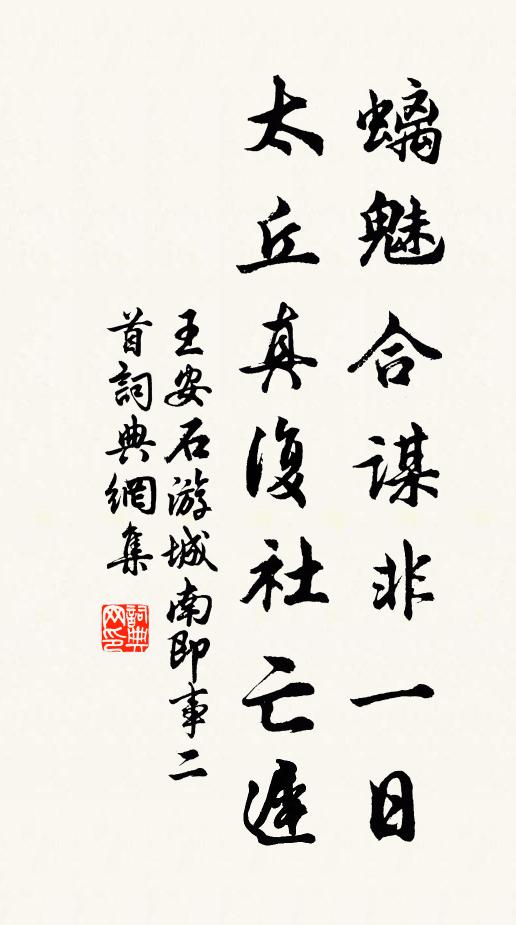 螭魅合謀非一日
太丘真復社亡遲
王安石游城南即事二
首詞典網集
詞典網印